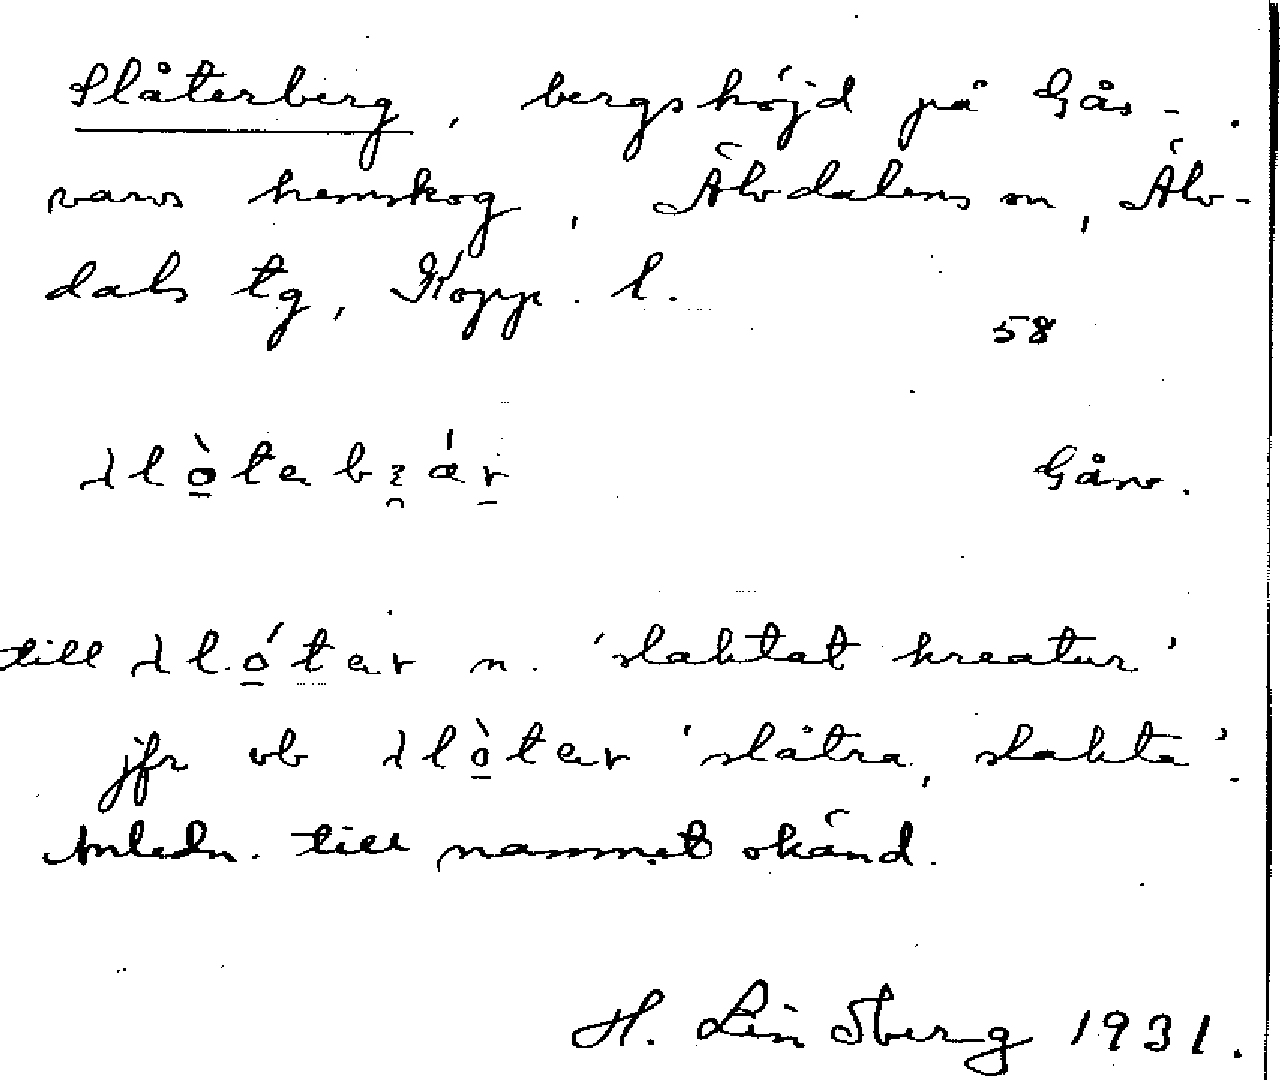 Slåterberg, bergshöjd på Gås-
varvs hemskog, Älvdalens sn, Älv-
dals tg, Kopp. l.
58
Gåsv.
till n. 'slaktat kreatur'
jfr vb 'slåtra, slakta'.
Anledn. till namnet okänd.
H. Lindberg 1931.